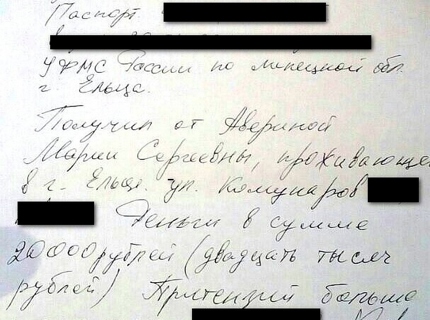 Паспорт
УФМС России по Липецкой обл.
г. Ельца.
Получил от Авериной
Марии Сергеевны, проживающе
в г. Ельце. ул. Комунаров
Деньги в сумме
20000 рублей (двадцать тысяч
рублей) Притензий больше